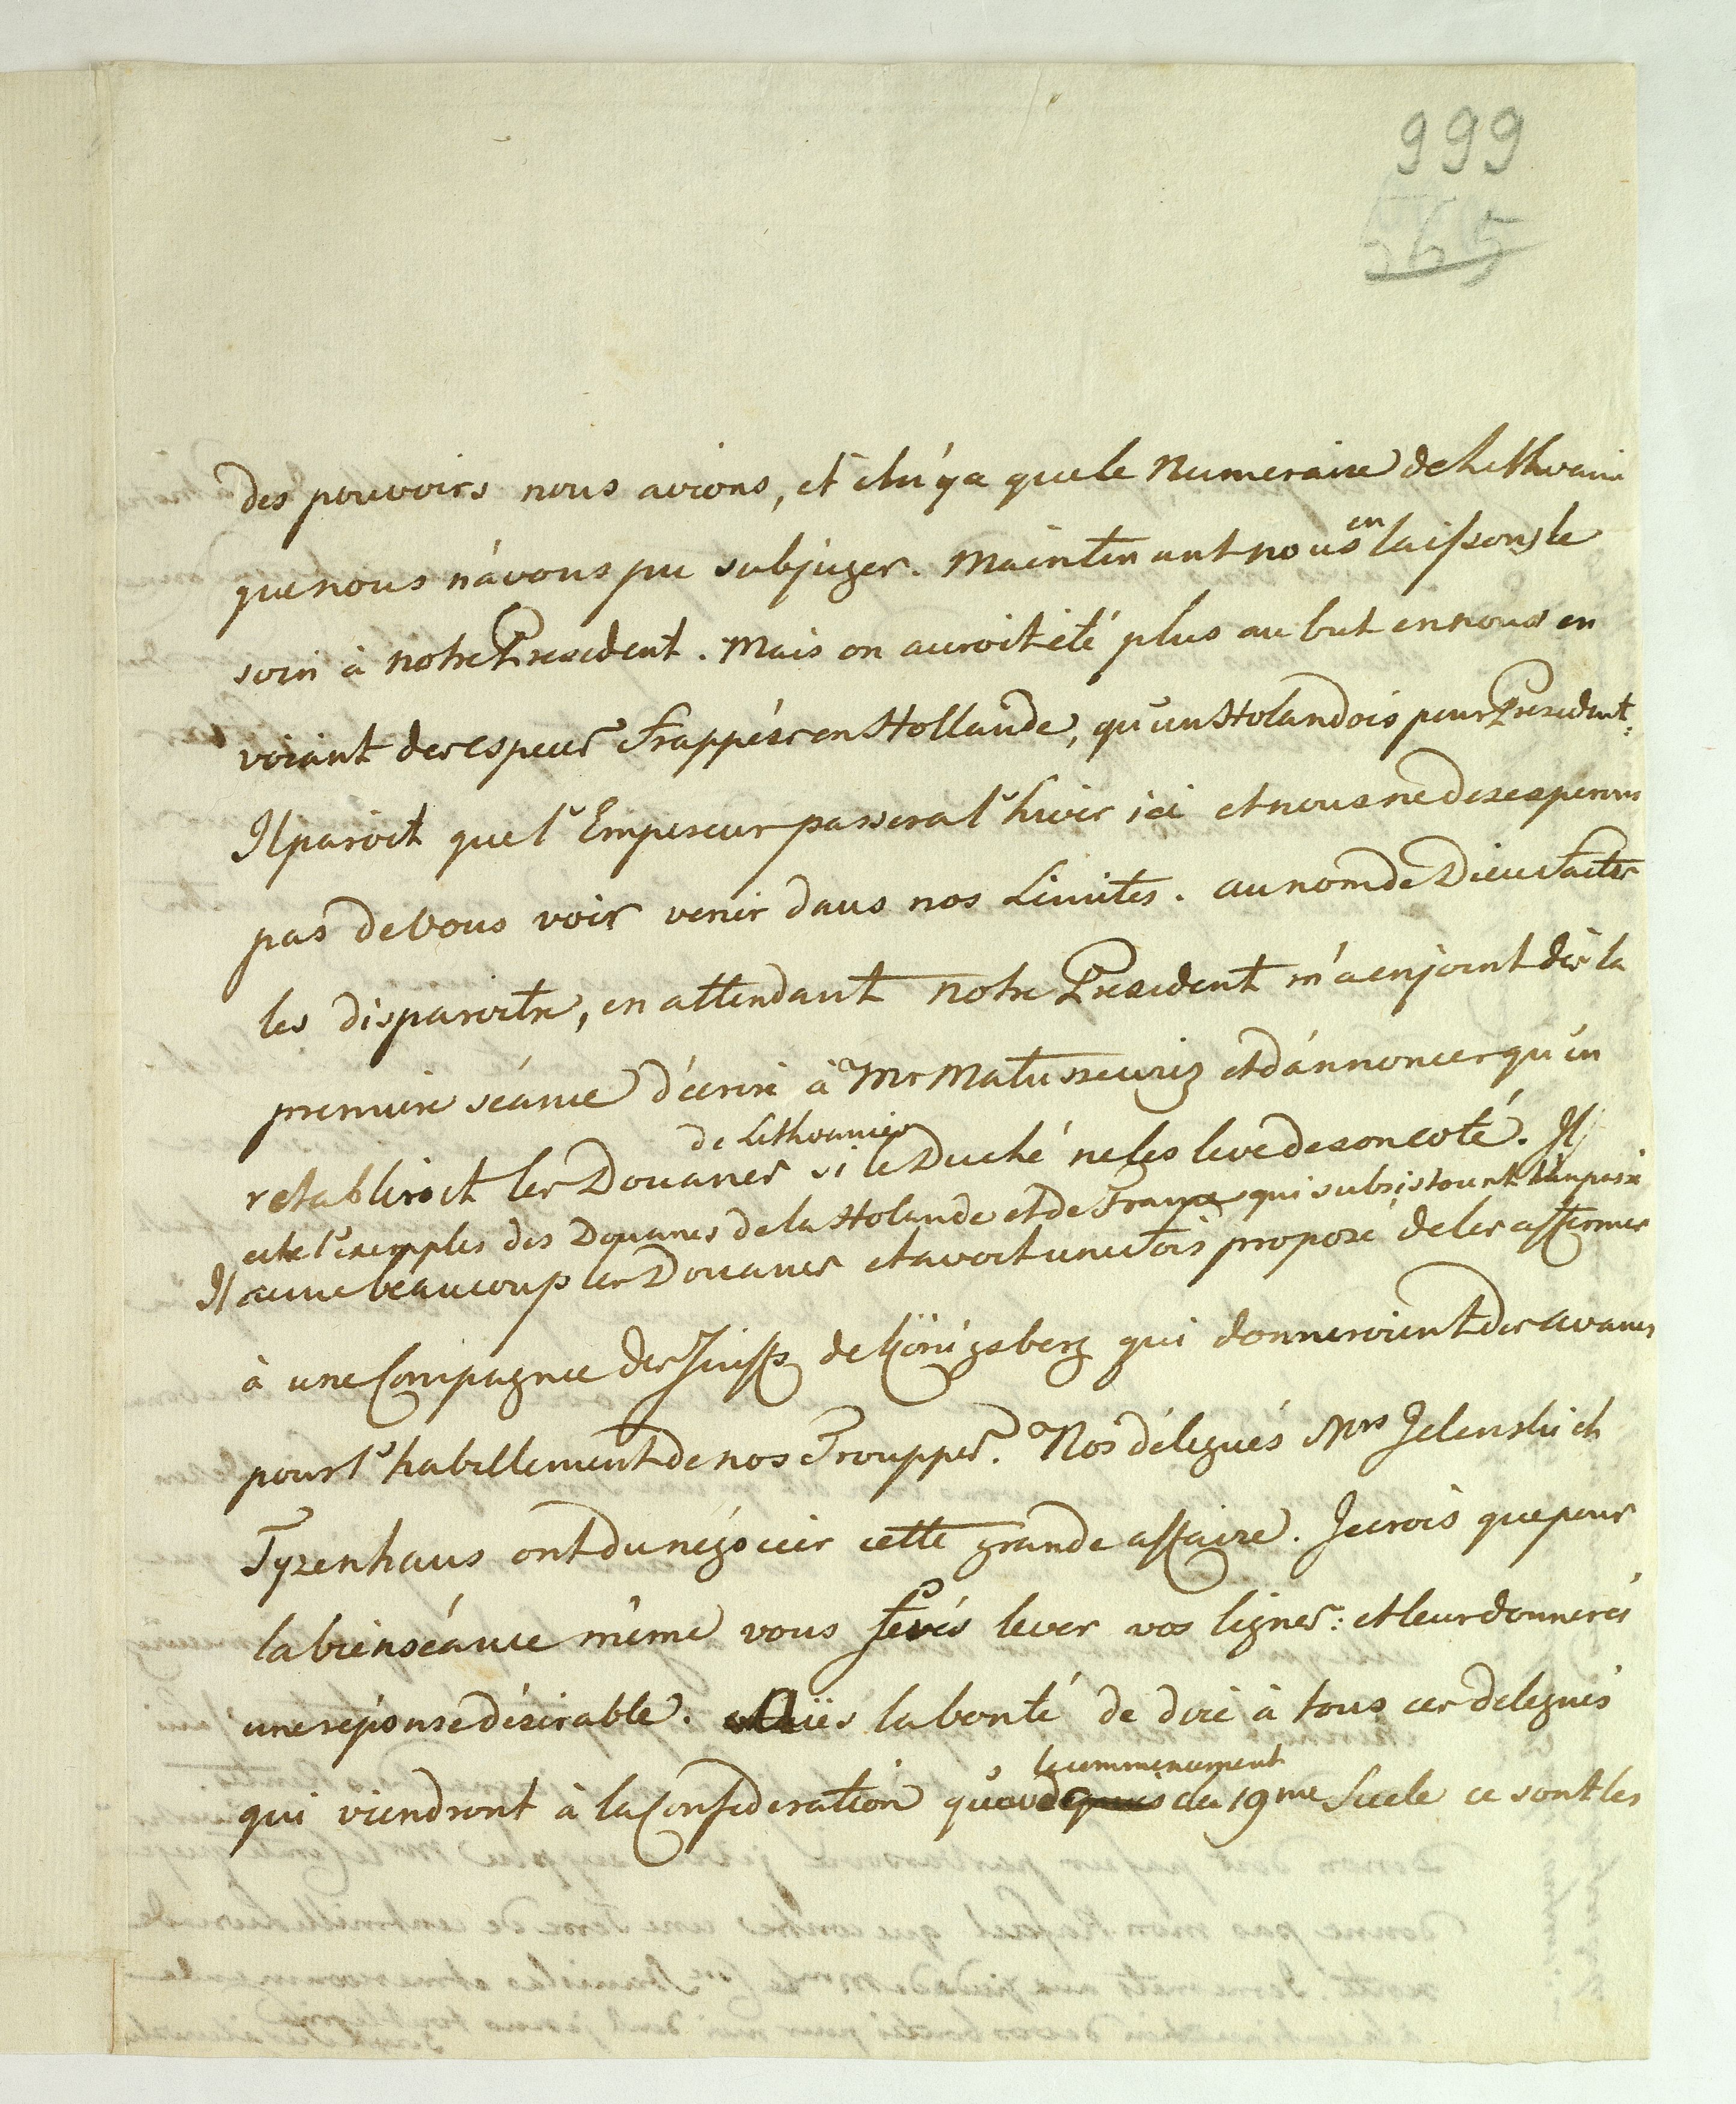 999
565
des pouvoirs nous avions, et il n'y a que le Numeraire de Lithwanie
que nous n'avons pu subjuger. Maintenant nous en laissons le
soin à notre President. Mais on auroit été plus au but en nous en
voiant des especes frappées en Hollande, qu'un Holandois pour President.
Il paroit que l'Empereur passera l'hiver ici et nous ne desesperons
pas de vous voir venir dans nos Limites. au nom de Dieu faites
les disparoitre, en attendant notre President m'a enjoint dès la
premiere séance d'ecrire à Mr Matussewiz et d'annoncer qu'on
retabliroit les Douanes de Lithuanie si le Duché ne les leve de son coté. Il
cite l'exemples des Douanes de la Holande et de France qui subsistount
Il aime beaucoup les Douanes et avoit une fois proposé de les affermer
à une Compagnie des Juifs de Königsberg qui donneroient des avances
pour l'habillement de nos Trouppes. Nos délegués Mrs Jelenski et
Tyzenhaus ont du négocier cette grande affaire. Je crois que pour
la bienséance même vous ferés lever vos lignes: et leur donnerés
une réponse désirable. Aiiés la bonté de dire à tous ces delegués
qui viendront à la Confederation qu'au commencement du 19me Siecle ce sont les